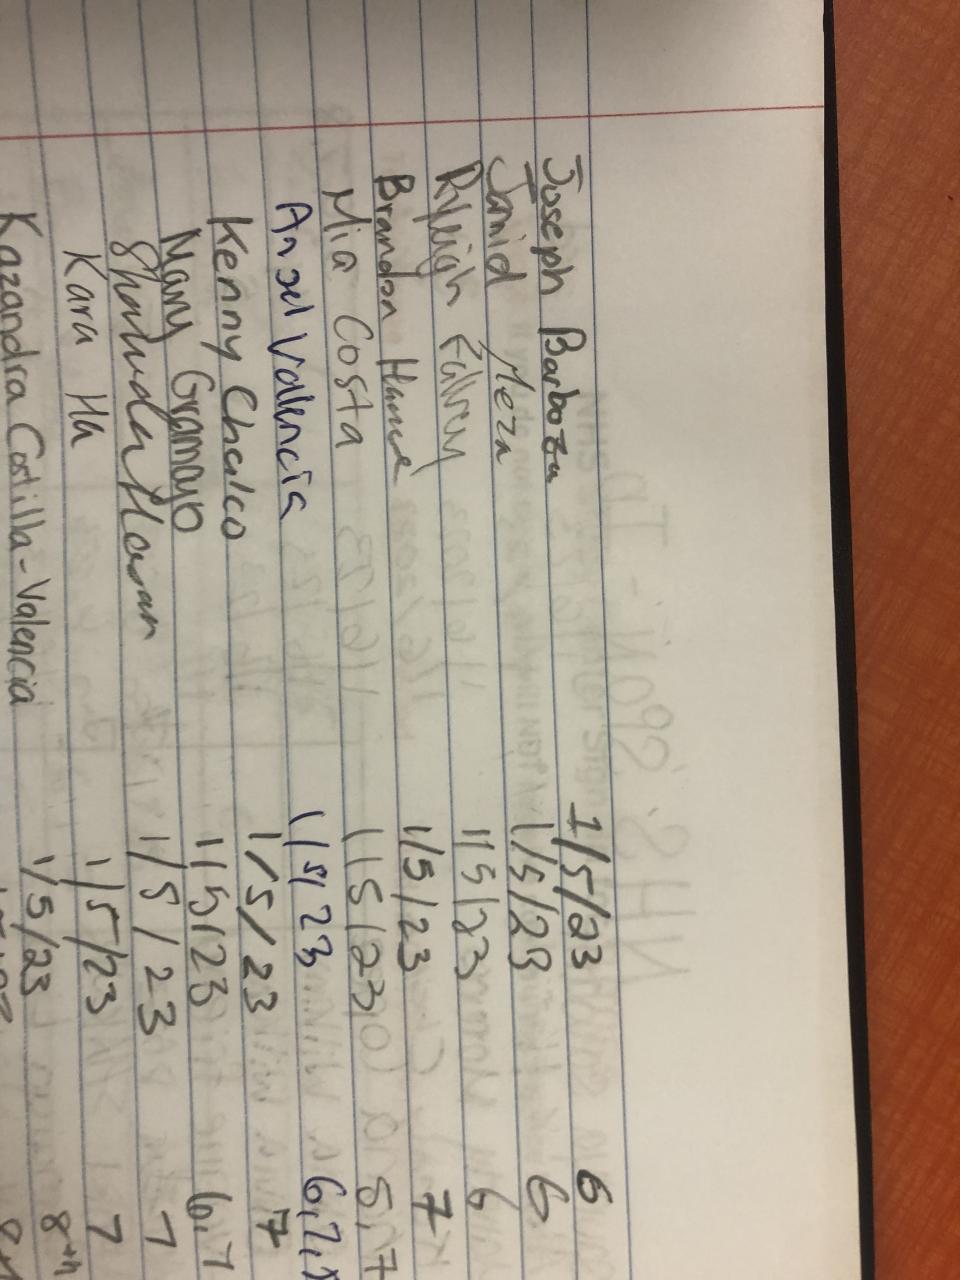 Joseph Barboza 1/5/23 6
Jamid Meza 1/5/23 6
Ryleigh 1/5/23 6
Brandon 1/5/23 7
Mia Costa 1/5/23 5,7
Angel Valencia 1/5/23 6,7,
Kenny Chalco 1/5/23 7
Many Gramayo 1/5/23 6,7
1/5/23 7
Kara Ha 1/5/23 7
Kazandra Costilla-Valencia 1/5/23 8th